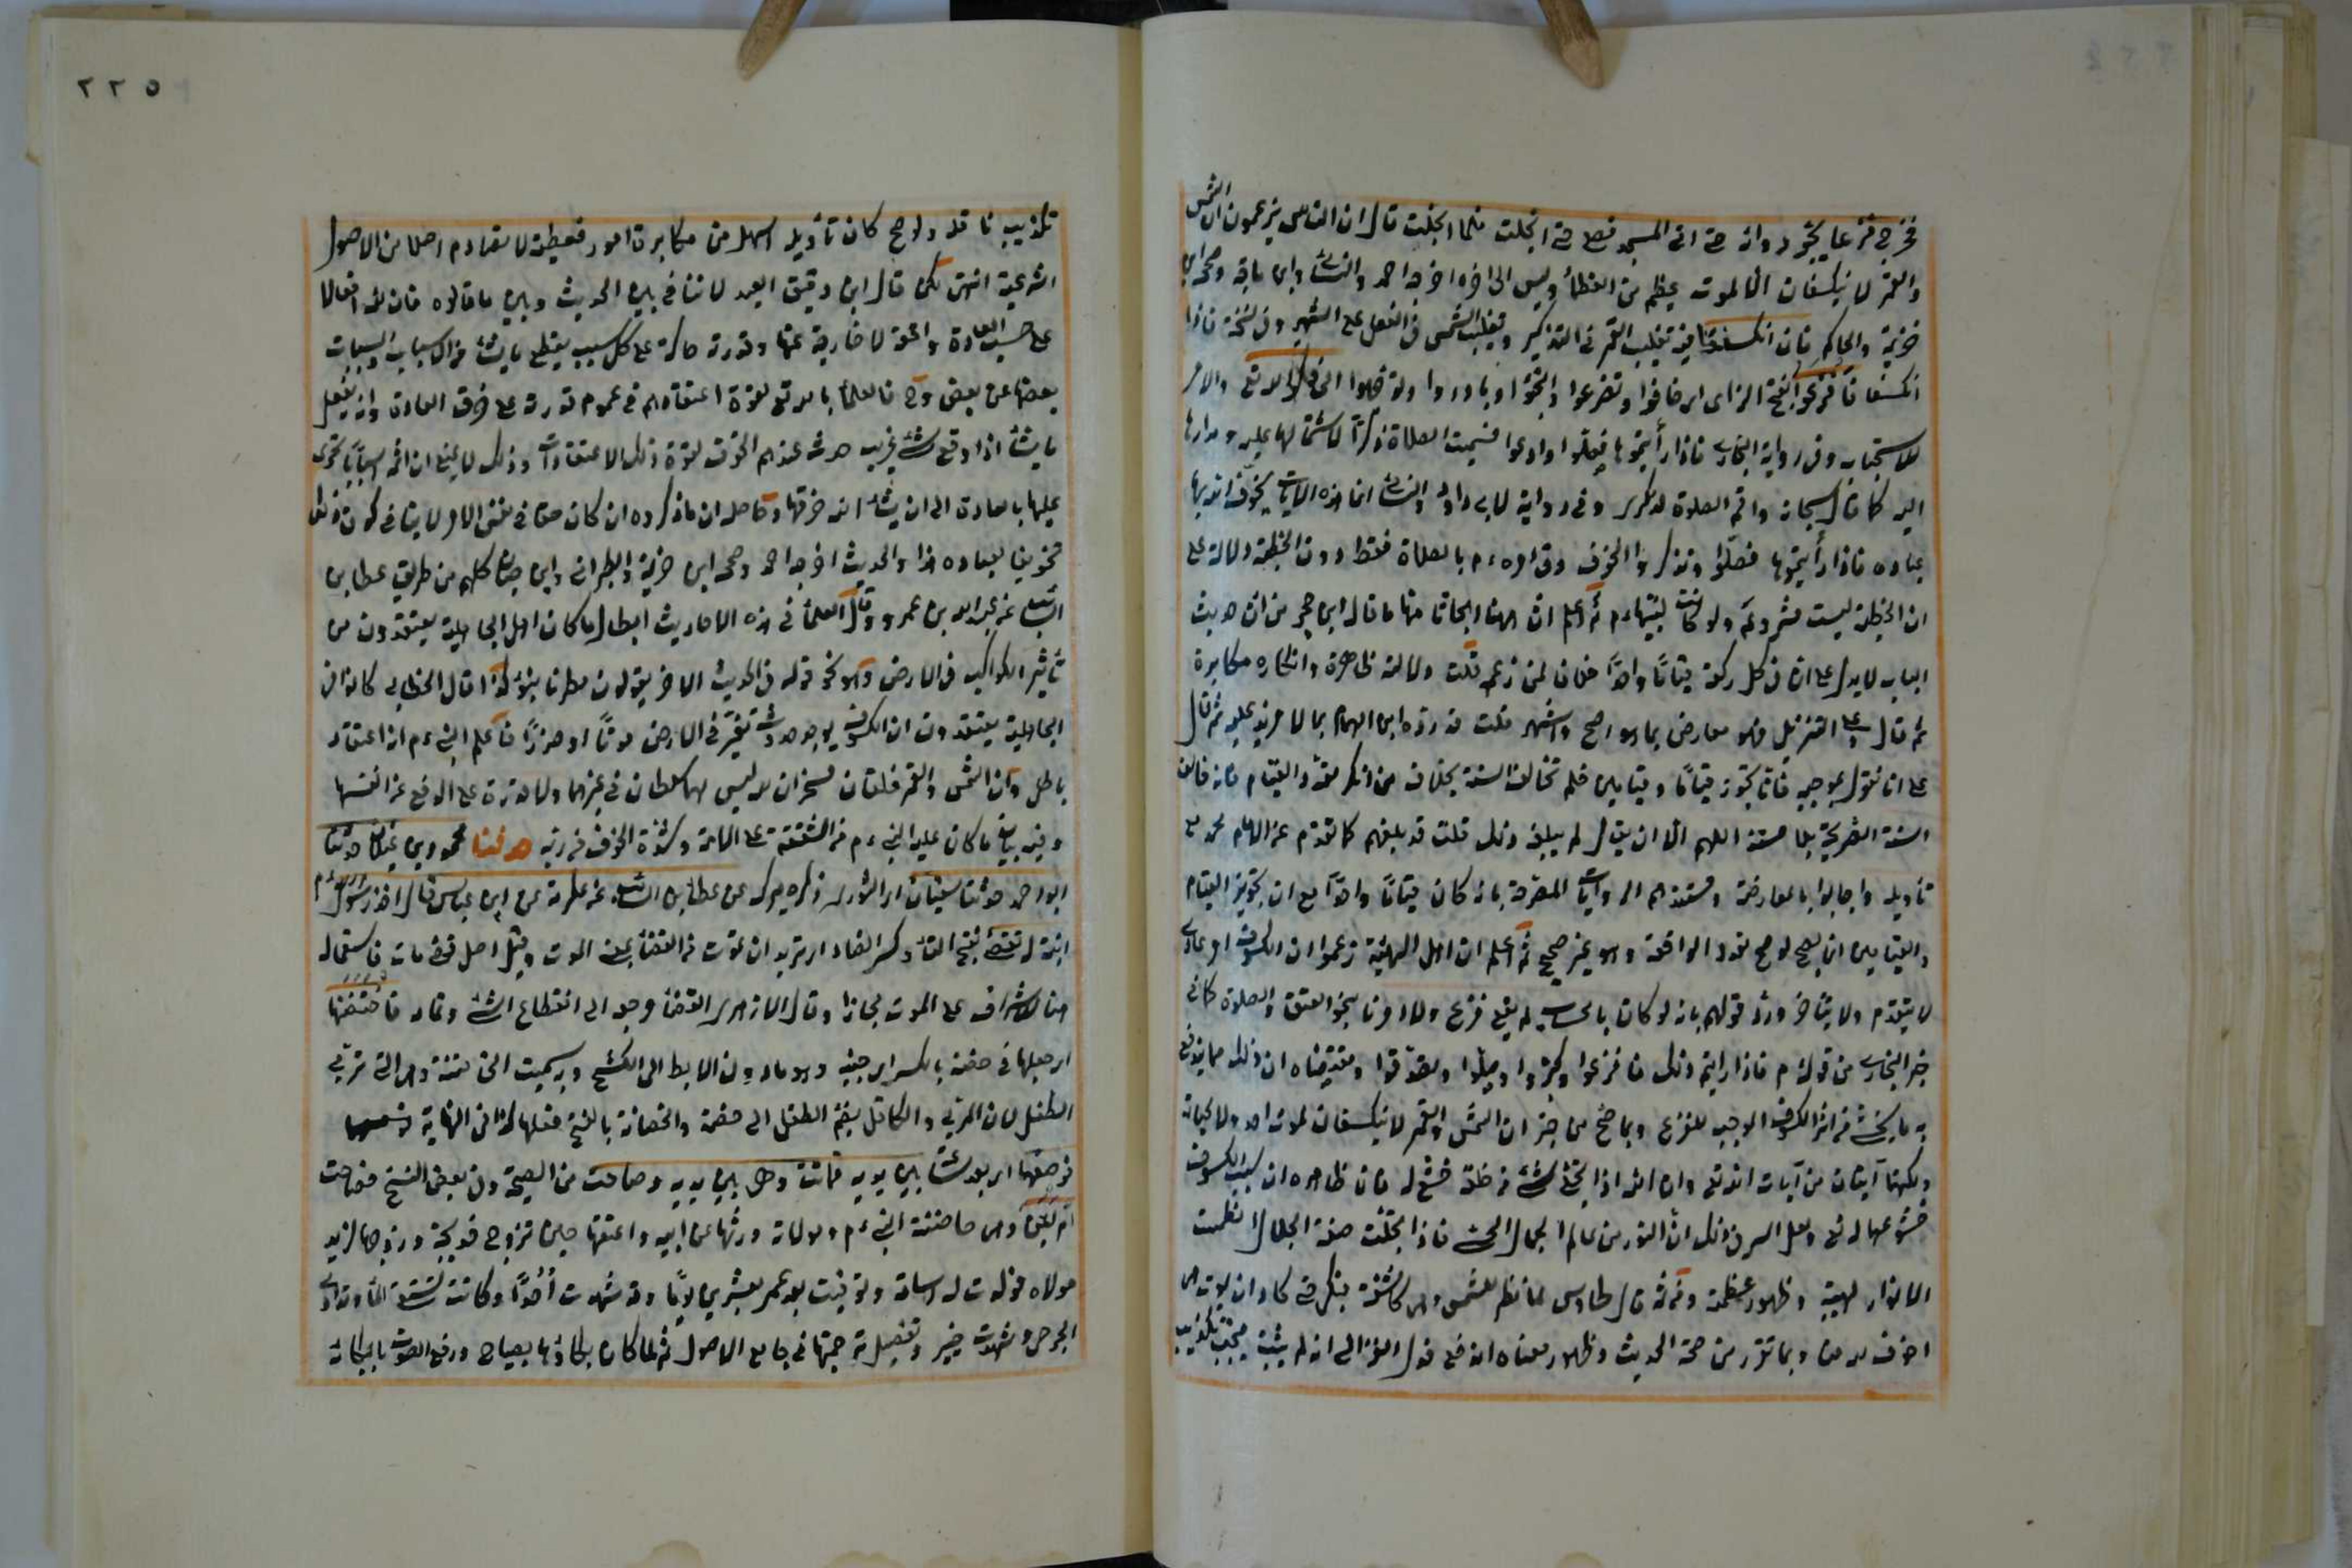 فخرج فزعا يجر رداءه حتى اتى المسجد فصلى حتى انجلت فلما انجلت قال ان الناس يزعمون ان الشمس
والقمر لا ينكسفان الا لموت عظيم من العظماء وليس الى اخره اخرجه احمد والنسائى وابن ماجه وصححه ابن
خزيمة والحاكم فان انكسفا فيه تغليب القمر فى التذكير وتغليب الشمس فى الفعل على الشهير وفى نسخة فاذا
انكسفا فافزعوا بفتح الزاى اى خافوا وتضرعوا والتجؤا وبادروا وتوجهوا الى ذكر الله تعالى والامر
للاستحباب وفى رواية البخارى فاذا رأيتموها فصلوا وادعوا فسميت الصلاة ذكرا لاشتمالها عليه ومدارها
اليه كما قال سبحانه واقم الصلوة لذكرى وفى رواية لابى داود والنسائى انما هذه الآيات يخوف الله بها
عباده فاذا رأيتموها فصلوا وتذكروا الخوف وفى امره ءم بالصلاة فقط دون الخطبة دلالة على
ان الخطبة ليست مشروعة ولو كانت لبينها ءم ثم اعلم ان ههنا ابحاثا منها ما قال ابن حجر من ان حديث
الباب لا يدل على ان فى كل ركعة قياما واحدا خلافا لمن زعمه قلت دلالته ظاهرة وانكاره مكابرة
ثم قال وعلى التنزيل فهو معارض بما هو اصح واشهر قلت قد رده ابن الهمام بما لا مزيد عليه ثم قال
على انا نقول بموجبه فانا نجوز قياما وقيامين فلم نخالف السنة بخلاف من انكر تعدد القيام فانه خالف
السنة الصريحة بلا مستند اللهم الا ان يقال لم يبلغه ذلك قلت قد بلغهم كما تقدم عن الامام محمد مع
تأويله واجابوا بالمعارضة ومستندهم الروايات المصرحة بانه كان قياما واحدا مع ان تجويز القيام
والقيامين انما يصح لو صح تعدد الواقعة وهو غير صحيح ثم اعلم ان اهل الهيئة زعموا ان الكسوف امر عادى
لا يتقدم ولا يتأخر ورد قولهم بانه لو كان بالحساب لم يقع فزع ولا امرنا بنحو العتق والصلوة كما فى
خبر البخارى من قوله ءم فاذا رأيتم ذلك فافزعوا وكبروا وصلوا وتصدقوا ومقتضاه ان ذلك مما يدفع
به ما يخشى من اثر الكسوف الموجب للفزع وبما صح من خبر ان الشمس والقمر لا ينكسفان لموت احد ولا لحياته
ولكنهما آيتان من آيات الله تعالى وان الله اذا تجلى لشئ من خلقه خشع له فان ظاهره ان سبب الكسوف
خشوعهما له تعالى ولعل السر فى ذلك ان النور من عالم الجمال الحسى فاذا تجلت صفة الجلال انطمست
الانوار لهيبته وظهور عظمته ومن ثم قال طاوس لما نظر للشمس وهى كاشفة فبكى حتى كاد ان يموت هى
اخوف لله منا وبما تقرر من صحة الحديث وظهور معناه اندفع قول الغزالى انه لم يثبت فيجب تكذيب
٢٢٥
تكذيب ناقله ولو صح كان تأويله اسهل من مكابرة امور قطعية لا تصادم اصلا من الاصول
الشرعية انتهى لكن قال ابن دقيق العيد لا تنافى بين الحديث وبين ما قالوه فان لله افعالا
على حسب العادة وافعالا خارجة عنها وقدرته حاكمة على كل سبب يقطع ما يشاء من الاسباب والمسببات
بعضها عن بعض وح فالعلماء بالله تعالى لقوة اعتقادهم فى عموم قدرته على خرق العادة وانه يفعل
ما يشاء اذا وقع شئ غريب حدث عندهم الخوف لقوة ذلك الاعتقاد وذلك لا يمنع ان ثمه اسبابا تجرى
عليها بالعادة الى ان يشاء الله خرقها وحاصله ان ما ذكروه ان كان حقا فى نفس الامر لا ينافى كون ذلك
تخويفا لعباده هذا والحديث اخرجه احمد وصححه ابن خزيمة والطبرانى وابن حبان كلهم من طريق عطا بن
السائب عن عبد الله بن عمرو وقال العلماء فى هذه الاحاديث ابطال ما كان اهل الجاهلية يعتقدون من
تأثير الكواكب فى الارض وهو نحو قوله فى الحديث الاخر يقولون مطرنا بنوء كذا قال الخطابى كانوا فى
الجاهلية يعتقدون ان الكسوف يوجب حدوث تغير فى الارض موتا او ضررا فاعلم النبى ءم انه اعتقاد
باطل وان الشمس والقمر خلقان مسخران لله ليس لهما سلطان فى غيرهما ولا قدرة على الدفع عن انفسهما
وفيه بيان ما كان عليه النبى ءم من الشفقة على امته وشدة الخوف من ربه حدثنا محمود بن غيلان حدثنا
ابو احمد حدثنا سفيان اى الثورى ذكره ميرك عن عطا بن السائب عن عكرمة عن ابن عباس قال اخذ رسول الله ءم
ابنة له تقضى بفتح التاء وكسر الضاد اى تريد ان تموت من القضاء بمعنى الموت وقيل اصل قضى مات فاستعماله
هنا للاشراف على الموت مجازا وقال الازهرى القضاء مرجعه الى انقطاع الشئ وتمامه فاحتضنها
اى جعلها فى حضنه بالكسر اى جنبه وهو ما دون الابط الى الكشح وبه سميت الحاضنة وهى التى تربى
الطفل لان المربى والكافل يضم الطفل الى حضنه والحضانة بالفتح فعلها كذا فى النهاية
فوضعها اى بعد ساعة بين يديه فماتت وهى بين يديه وصاحت من الصيحة وفى بعض النسخ فصاحت
ام ايمن وهى حاضنة النبى ءم ومولاته ورثها من ابيه واعتقها حين تزوج خديجة وزوجها لزيد
مولاه فولدت له اسامة وتوفيت بعد عمر بعشرين يوما وقد شهدت احدا وكانت تسقى الماء وتداوى
الجرحى وشهدت خيبر وتفصيل ترجمتها فى جامع الاصول ثم لما كان بكاؤها بصياح ورفع الصوت بالبكاء